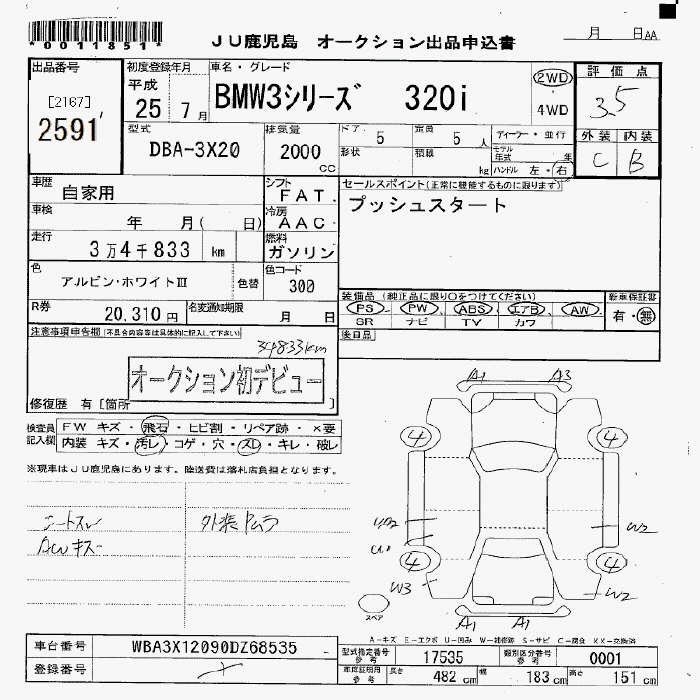 *0011851*
JU鹿児島 オークション出品申込書
月 日AA
出品番号
[2167]
2591
初度登録年月
平成
25 7月
車名・グレード
BMW3シリーズ 320i
2WD
4WD
評価点
3.5
外装 内装
C B
型式
DBA-3X20
排気量
2000
cc
ドア 5
定員 5人
形状
積載 kg
ディーラー・並行
モデル年式 年
ハンドル 左・右
車歴
自家用
シフト
FAT
セールスポイント(正常に機能するものに限ります)
プッシュスタート
車検
年 月( 日)
冷房
AAC
走行
3万4千833 km
燃料
ガソリン
色
アルピン・ホワイトIII
色替
色コード
300
R券
20,310円
名変通知期限
月 日
装備品 (純正品に限り○をつけてください)
PS PW ABS エアB AW
SR ナビ TV カワ
新車保証書
有・無
後日品
注意事項申告欄 (不具合内容等は具体的に記入して下さい)
34833km
オークション初デビュー
修復歴 有[箇所 ]
検査員記入欄
FW キズ・飛石・ヒビ割・リペア跡・×要
内装 キズ・汚レ・コゲ・穴・スレ・キレ・破レ
※現車はJU鹿児島にあります。陸送費は落札店負担となります。
シートスレ
AWキズ
外装ムラ
A1 A3
4 4
W2
W2
4 4
W3
W2
A1 A1
スペア
A-キズ E-エクボ U-凹み W-補修跡 S-サビ C-腐食 XX-交換済
車台番号
WBA3X12090DZ68535
登録番号
型式指定番号 参考 17535
類別区分番号 参考 0001
車庫証明用 参考
長さ 482 cm
幅 183 cm
高さ 151 cm